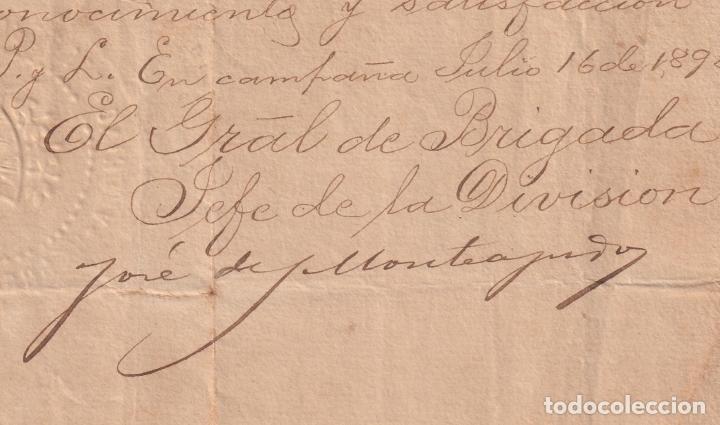 onocimiento y satisfaccion
P. y L. En campaña Julio 16 de 189
El Grāl de Brigada
Jefe de la Division
José de J Monteagudo
todocoleccion.net